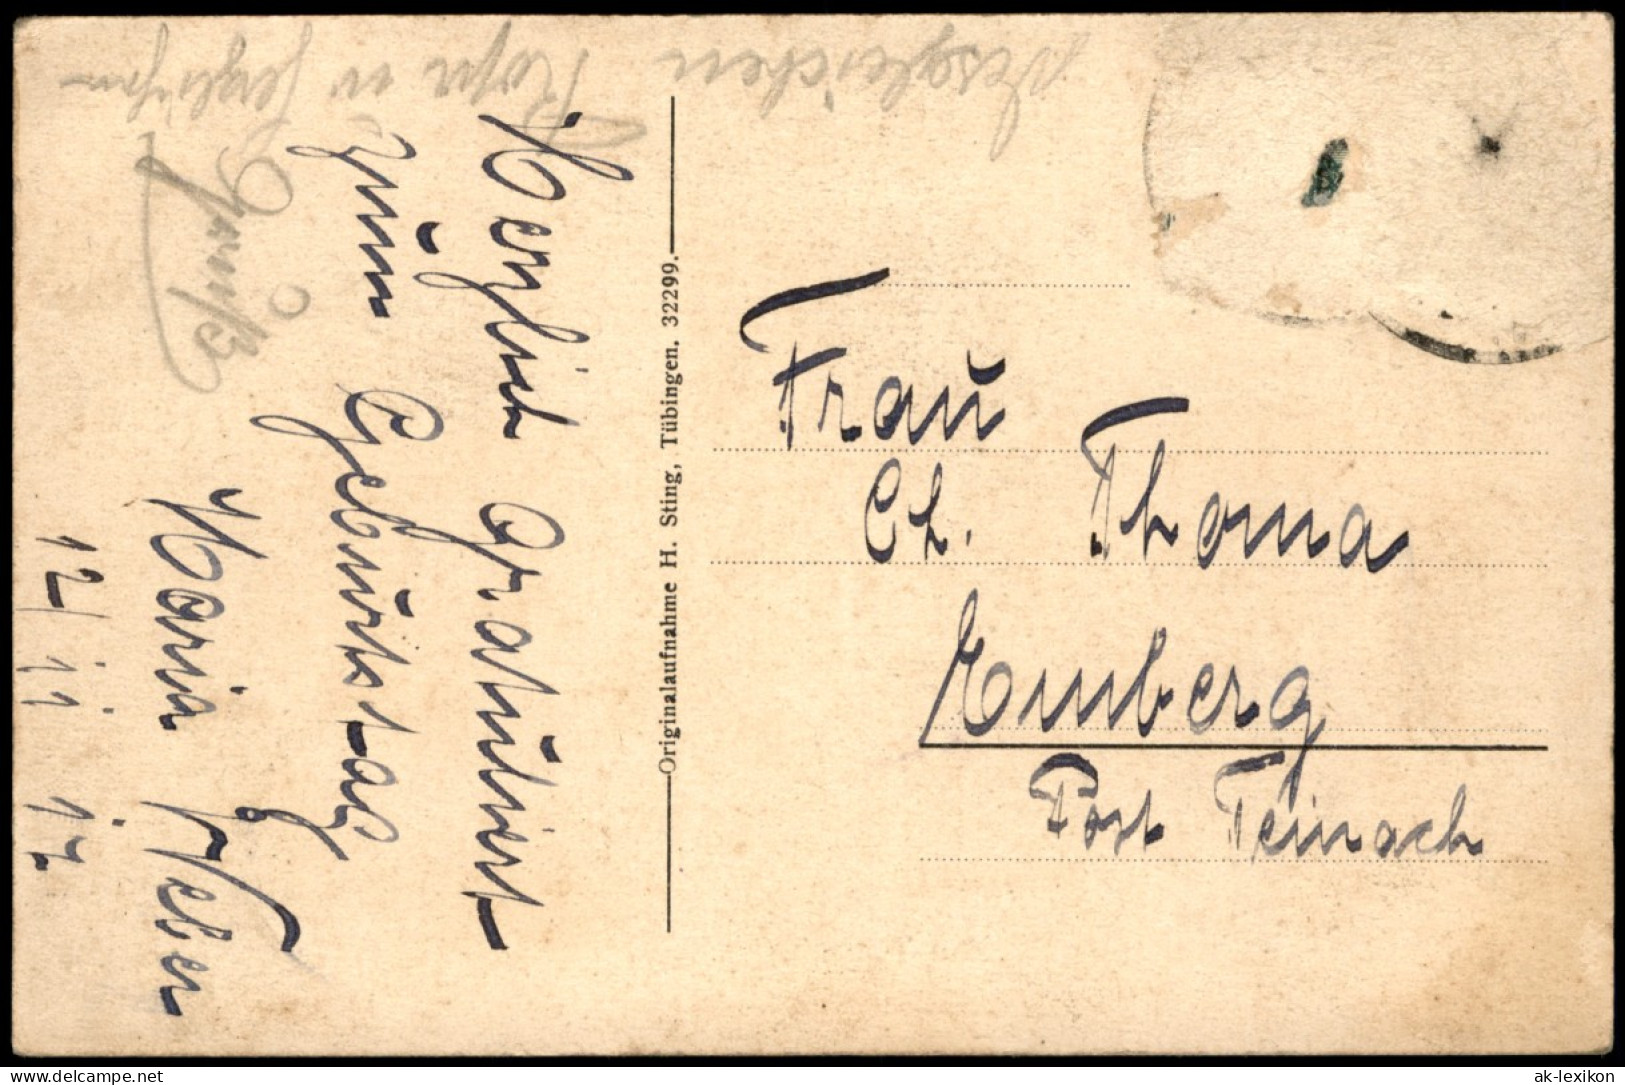 Herzlich gratuliert
zum Geburtstag
Maria Weber
12/11 17.
Originalaufnahme H. Sting, Tübingen. 32299.
Frau
Ch. Thoma
Emberg
Post Teinach
Desgleichen
www.delcampe.net
ak-lexikon